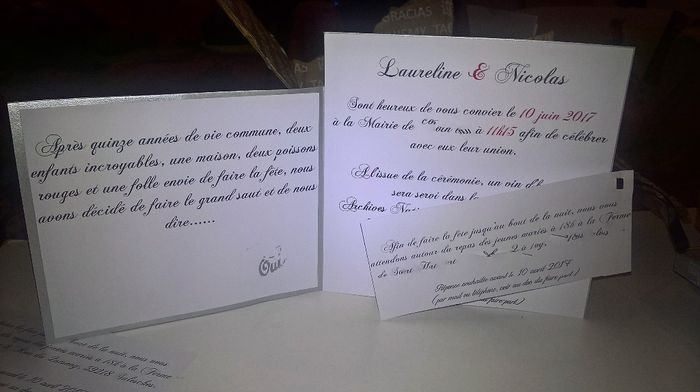 Après quinze années de vie commune, deux
enfants incroyables, une maison, deux poissons
rouges et une folle envie de faire la fête, nous
avons décidé de faire le grand saut et de nous
dire......
Oui
Laureline & Nicolas
Sont heureux de vous convier le 10 juin 2017
à la Mairie de à 11h15 afin de célébrer
avec eux leur union.
A l'issue de la cérémonie, un vin d'h
sera servi dans l
Archives
Afin de faire la fête jusqu'au bout de la nuit, nous vous
attendons autour du repas des jeunes mariés à 18h à la Ferme
de
Réponse souhaitée avant le 10 avril 2017
(par mail ou téléphone, voir au dos du faire part)
faire part)
GRACIAS
de la nuit, nous vous
mariés à 18h à la Ferme
10 avril 2017